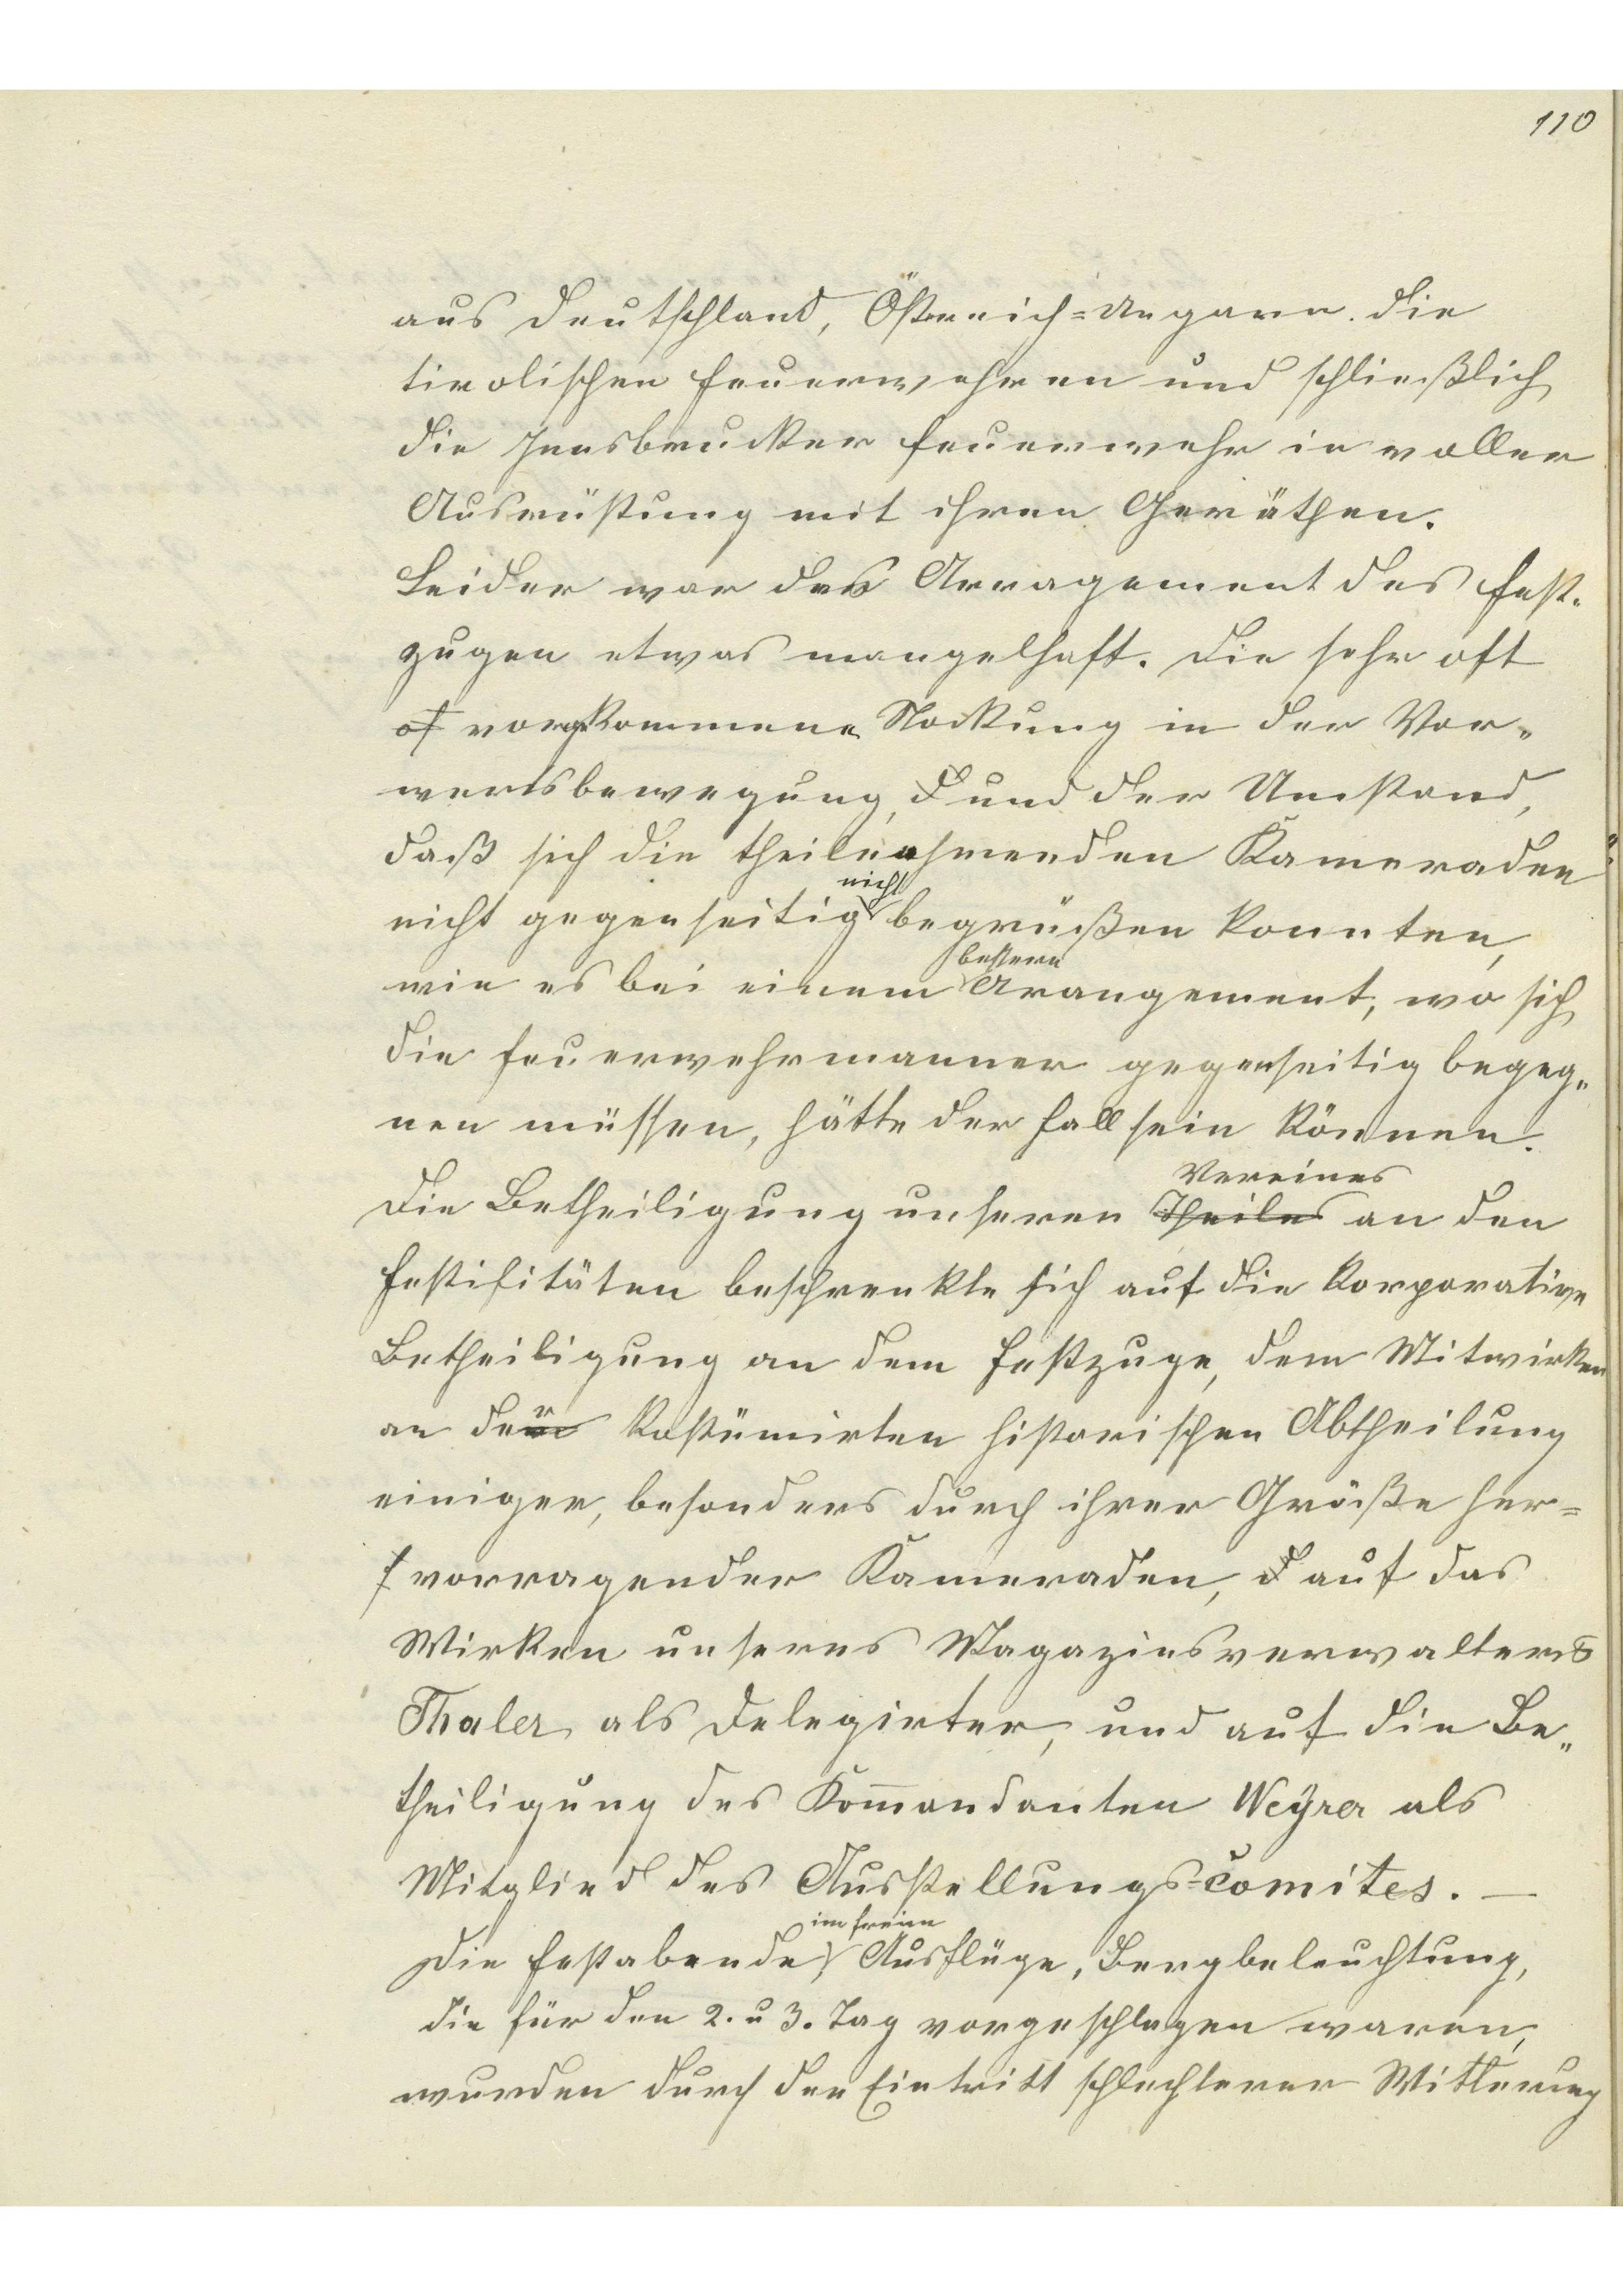 110
aus Deutschland, Östreich=Ungarn. die
tirolischen Feuerwehren und schließlich
die Innsbrucker Feuerwehr in voller
Ausrüstung mit ihren Geräthen.
Leider war das Arragement des Fest-
zuges etwas mangelhaft. Die sehr oft
of vorgekommene Stockung in der Vor-
wertsbewegung, d und der Umstand,
daß sich die theilnehmenden Kameraden
nicht
nicht gegenseitig begrüßen konnten,
bessern
wie es bei einem Arangement, wo sich
die Feuerwehrmanner gegenseitig begeg-
nen müssen, hätte der Fall sein können.
Vereines
Die Betheiligung unseres Theiles an den
Festifitäten beschrenkte sich auf die korporative
Betheiligung an dem Festzuge, dem Mitwirken
an der kostümirten historischen Abtheilung
einiger, besonders durch ihrer Größe her=
f vorragender Kameraden, d auf das
Wirken unseres Magazinsverwalters
Thaler als Delegirter, und auf die Be-
theiligung des Kom̅andanten Weÿrer als
Mitglied des Ausstellungs=comites. —
im freien
Die Festabende, Ausflüge, Bergbeleuchtung,
die für den 2. u 3. Tag vorgeschlagen waren,
wurden durch den Eintritt schlechterer Witterung